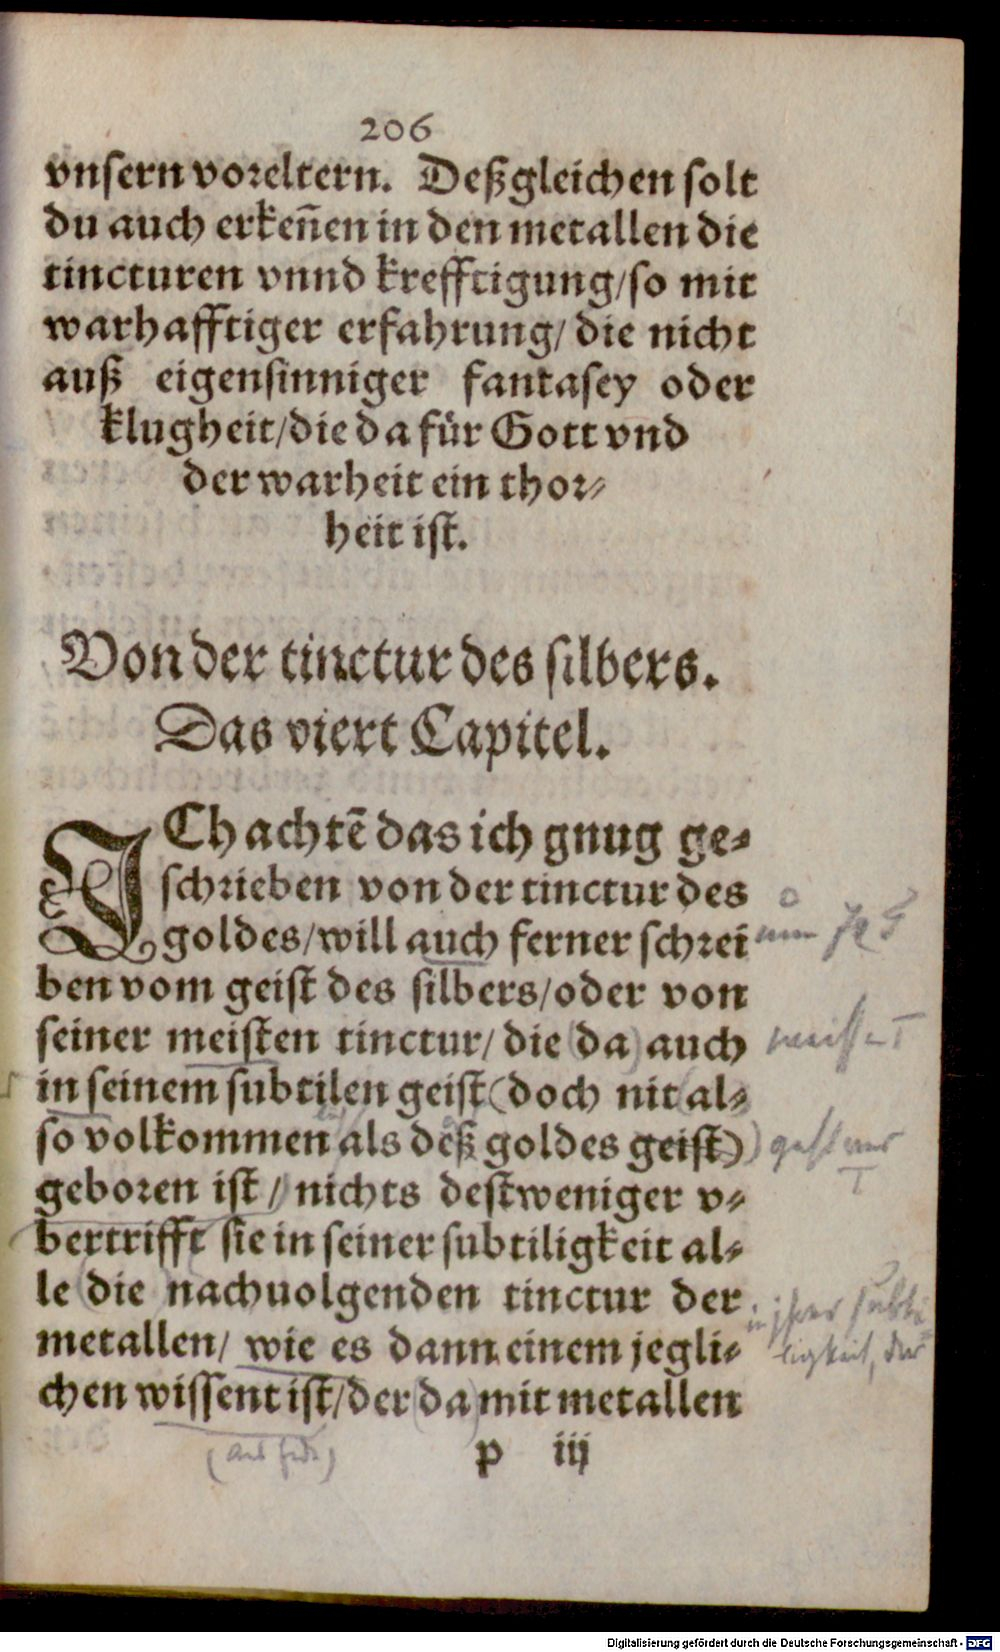 206
vnsern voreltern. Deßgleichen solt
du auch erkeñen in den metallen die
tincturen vnnd krefftigung/so mit
warhafftiger erfahrung/ die nicht
auß eigensinniger fantasey oder
klugheit/die da für Gott vnd
der warheit ein thor⸗
heit ist.
Von der tinctur des silbers.
Das viert Capitel.
ICh achtē das ich gnug ge⸗
schrieben von der tinctur des
goldes/will auch ferner schrei
ben vom geist des silbers/oder von
seiner meisten tinctur/ die da auch
in seinem subtilen geist (doch nit al⸗
so volkommen als deß goldes geist)
geboren ist/ nichts destweniger v⸗
bertrifft sie in seiner subtiligkeit al⸗
le die nachuolgenden tinctur der
metallen/ wie es dann einem jegli⸗
chen wissent ist/der da mit metallen
p iij
in jhrer subti
ligkeit, der
Digitalisierung gefördert durch die Deutsche Forschungsgemeinschaft - DFG